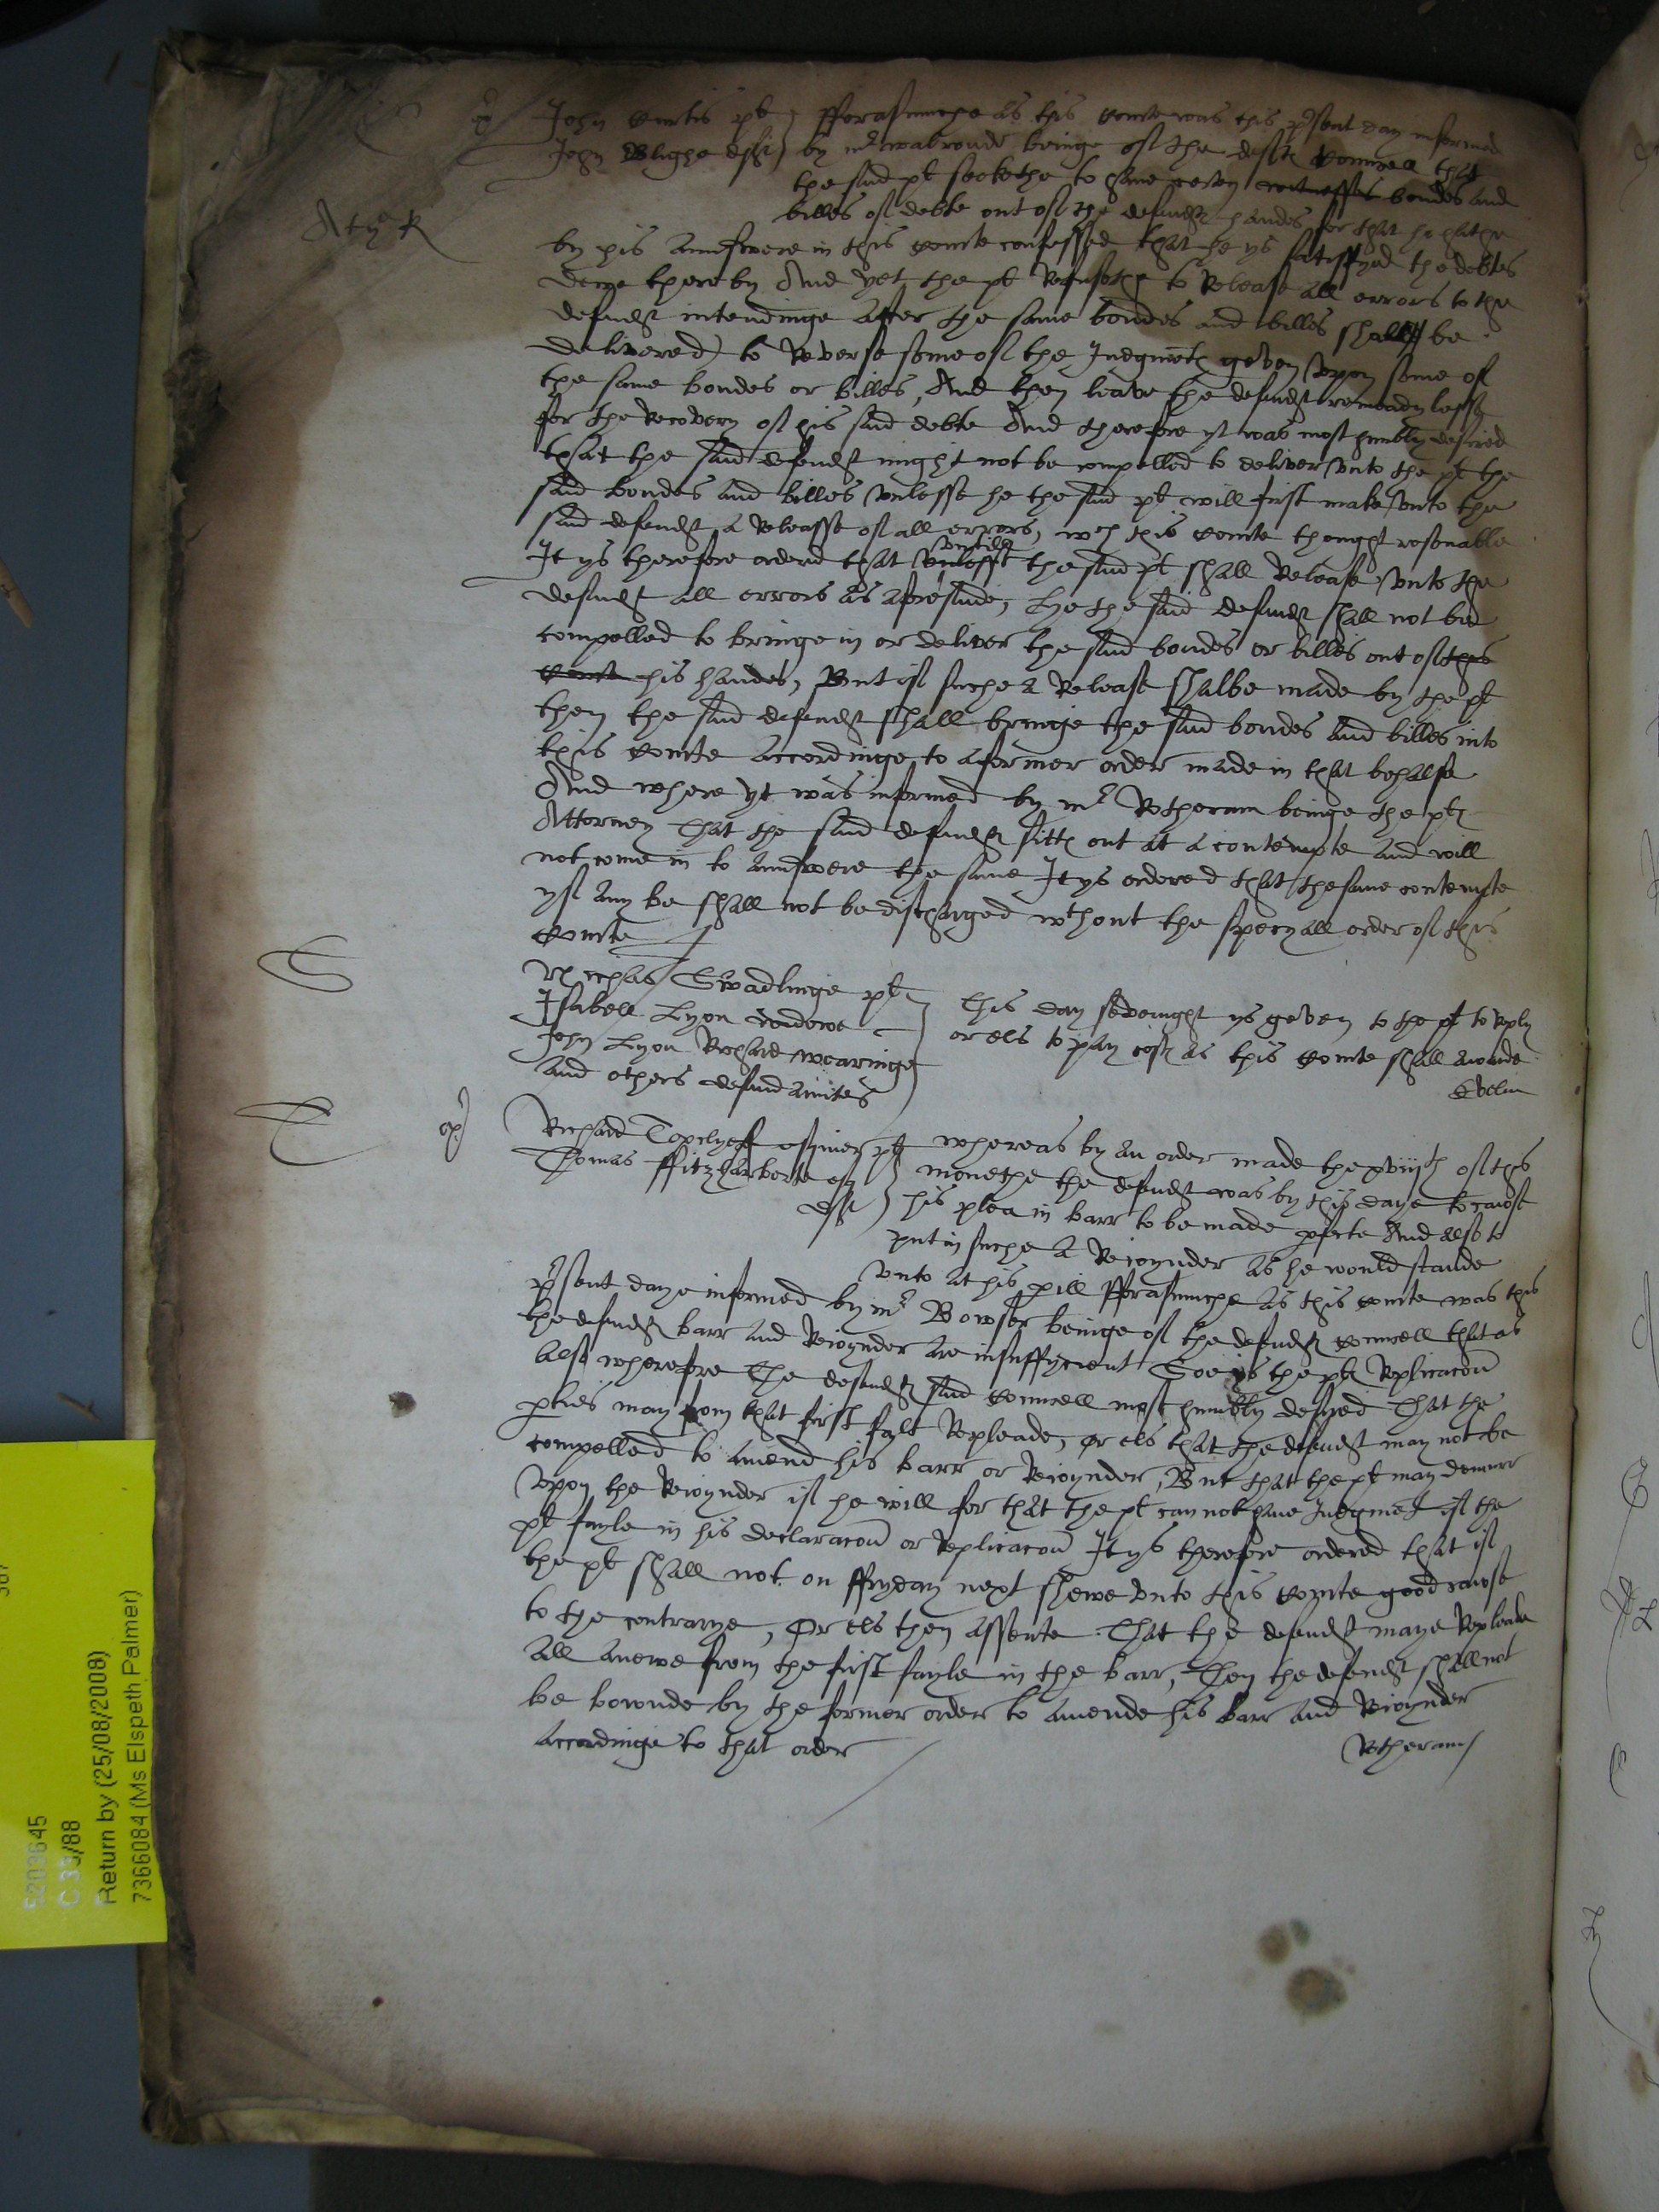 John Curtis pt
John Blighe deft
fforasmuche as this Courte was this p̲sent day informed
by mr walronde beinge of the deftes Counsell that
the said pt seekethe to have certen witnesses bondes and
billes of debte out of the defendt handes for that he hathe
by his aunswere in this Courte confessed that he ys satisfyed the debtes
dewe thereby And yet the pt Refusethe to Release all errors to the
defendt intendinge after the same bondes and billes shall be
delivered to Reverse some of the Judgmtes geven vpon some of
the same bondes or billes, And then leave the defendt remeadylesse
for the Recovery of his said debte And therefore yt was most humbly desired
that the said defendt might not be compelled to deliver vnto the pt the
said bondes and billes vnlesse he the said pt will first make vnto the
said defendt a Releasse of all errors, wch this Courte thought resonable
It ys therefore ordered that vnlesse vntill the said pt shall Release vnto the
defendt all errors as aforesaide, he the said defendt shall not bee
compelled to bringe in or deliver the said bondes or billes out of this
Courte his handes, But if suche a Release shalbe made by the pt
then the said defendt shall bringe the said bondes and billes into
this Courte accordinge to a former order made in that behalfe
And where yt was informed by mr Rotheram beinge the ptes
Attorney That the said defendt sittes out at a contempte and will
not come in to aunswere the same It ys ordered that the same contempte
yf any be shall not be discharged wthout the specyall order of this
Courte
S
Nichas Swadlinge pt
Isabell Lyon widowe
John Lyon Richard wearinge
and others defendauntes
This day sevenight ys geven to the pt to Reply
or els to pay costes as this Courte shall awarde
Evelin
T
Richard Topclyff esquier pt
Thomas ffitzharberte esq
deft
whereas by an order made the xviijth of this
monethe the defendt was by this daye to cause
his plea in barr to be made perfecte And also to
put in suche a Rejoynder as he would stande
vnto at his perill fforasmuche as this Courte was this
p̲sent daye informed by mr Bowser beinge of the defendt Counsell that as
the defendt barr and Rejoynder are insuffycient Soe ys the ptes Replicacon
also wherefore The defendt said Counsell most humbly desyred That the
parties may from that first falt Repleade, Or els that the defendt may not be
compelled to amend his barr or Rejoynder, But that the pt may demurr
vpon the Rejoynder if he will for that the pt can not have Judgmet if the
pt fayle in his declaracon or Replicacon It ys therefore ordered that if
the pt shall not on ffryday next shewe vnto this Courte good cause
to the contrarye, Or els then assente That the defendt maye Repleade
all anewe from the first fayle in the barr, Then the defendt shall not
be bownde by the former order to amende his barr and Rejoynder
accordinge to that order
Rotheram
5203645
C 33/88
Return by (25/08/2008)
7366084 (Ms Elspeth Palmer)